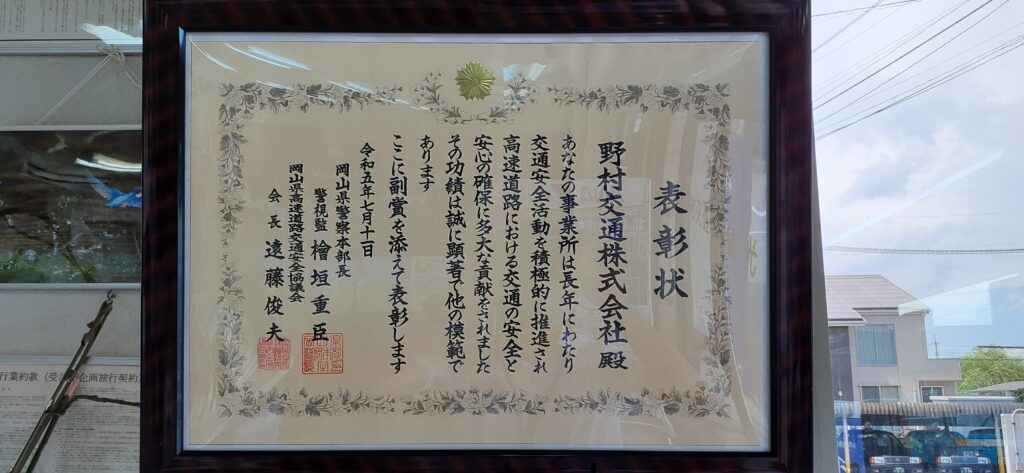 表彰状
野村交通株式会社殿
あなたの事業所は長年にわたり
交通安全活動を積極的に推進され
高速道路における交通の安全と
安心の確保に多大な貢献をされました
その功績は誠に顕著で他の模範で
あります
ここに副賞を添えて表彰します
令和五年七月十一日
岡山県警察本部長
警視監 檜垣重臣
岡山県高速道路交通安全協議会
会長 遠藤俊夫
行業約款（受注型企画旅行契約）